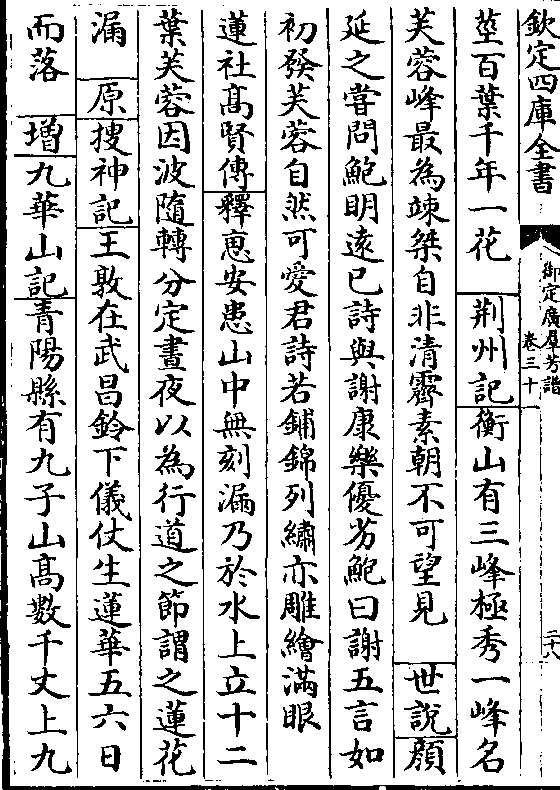 欽定四庫全書
御定廣羣芳譜
卷三十
二十八
莖百葉千年一花 荆州記衡山有三峰極秀一峰名
芙蓉峰最為竦桀自非清霽素朝不可望見 世說顔
延之嘗問鮑明遠已詩與謝康樂優劣鮑曰謝五言如
初發芙蓉自然可愛君詩若鋪錦列繡亦雕繪滿眼
蓮社髙賢傳釋惠安患山中無刻漏乃於水上立十二
葉芙蓉因波隨轉分定晝夜以為行道之節謂之蓮花
漏 原搜神記王敦在武昌鈴下儀仗生蓮華五六日
而落 増九華山記青陽縣有九子山髙數千丈上九